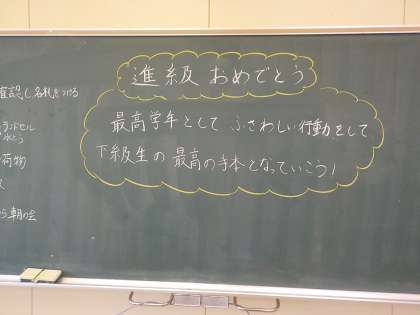 進級おめでとう
最高学年として ふさわしい行動をして
下級生の最高の手本となっていこう!
確認し名札をつける
ランドセル
水とう
荷物
朝の会